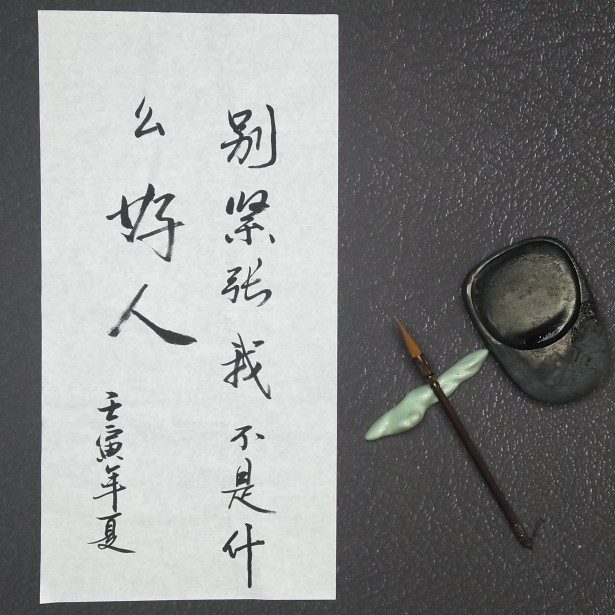 别紧张我不是什
么好人
壬寅年夏